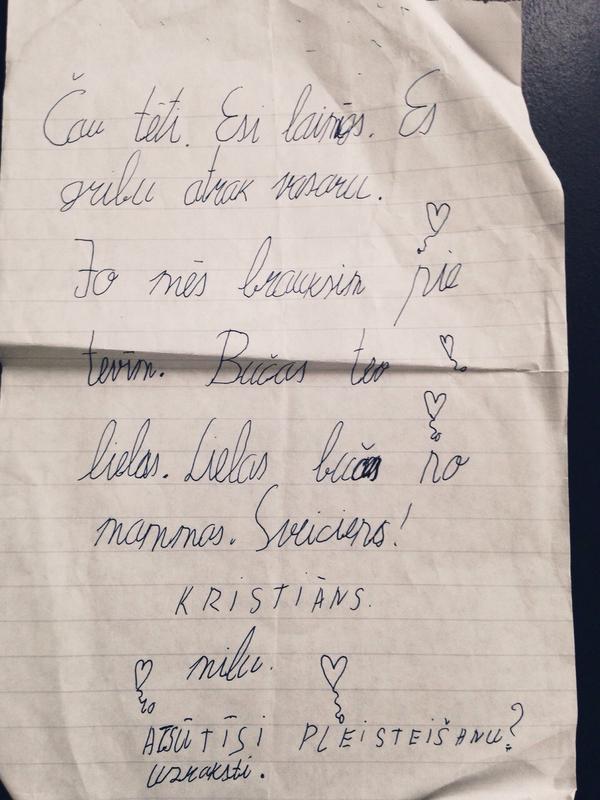 Čau tēti. Esi lainījs. Es
gribu atrak vasaru.
Jo mēs brauksim pie
tevīm. Bučas tev
lielas. Lielas bučas no
mammas. Sveiciens!
KRISTIĀNS.
milu.
ATSŪTĪSI PLEISTEIŠANU?
uzraksti.